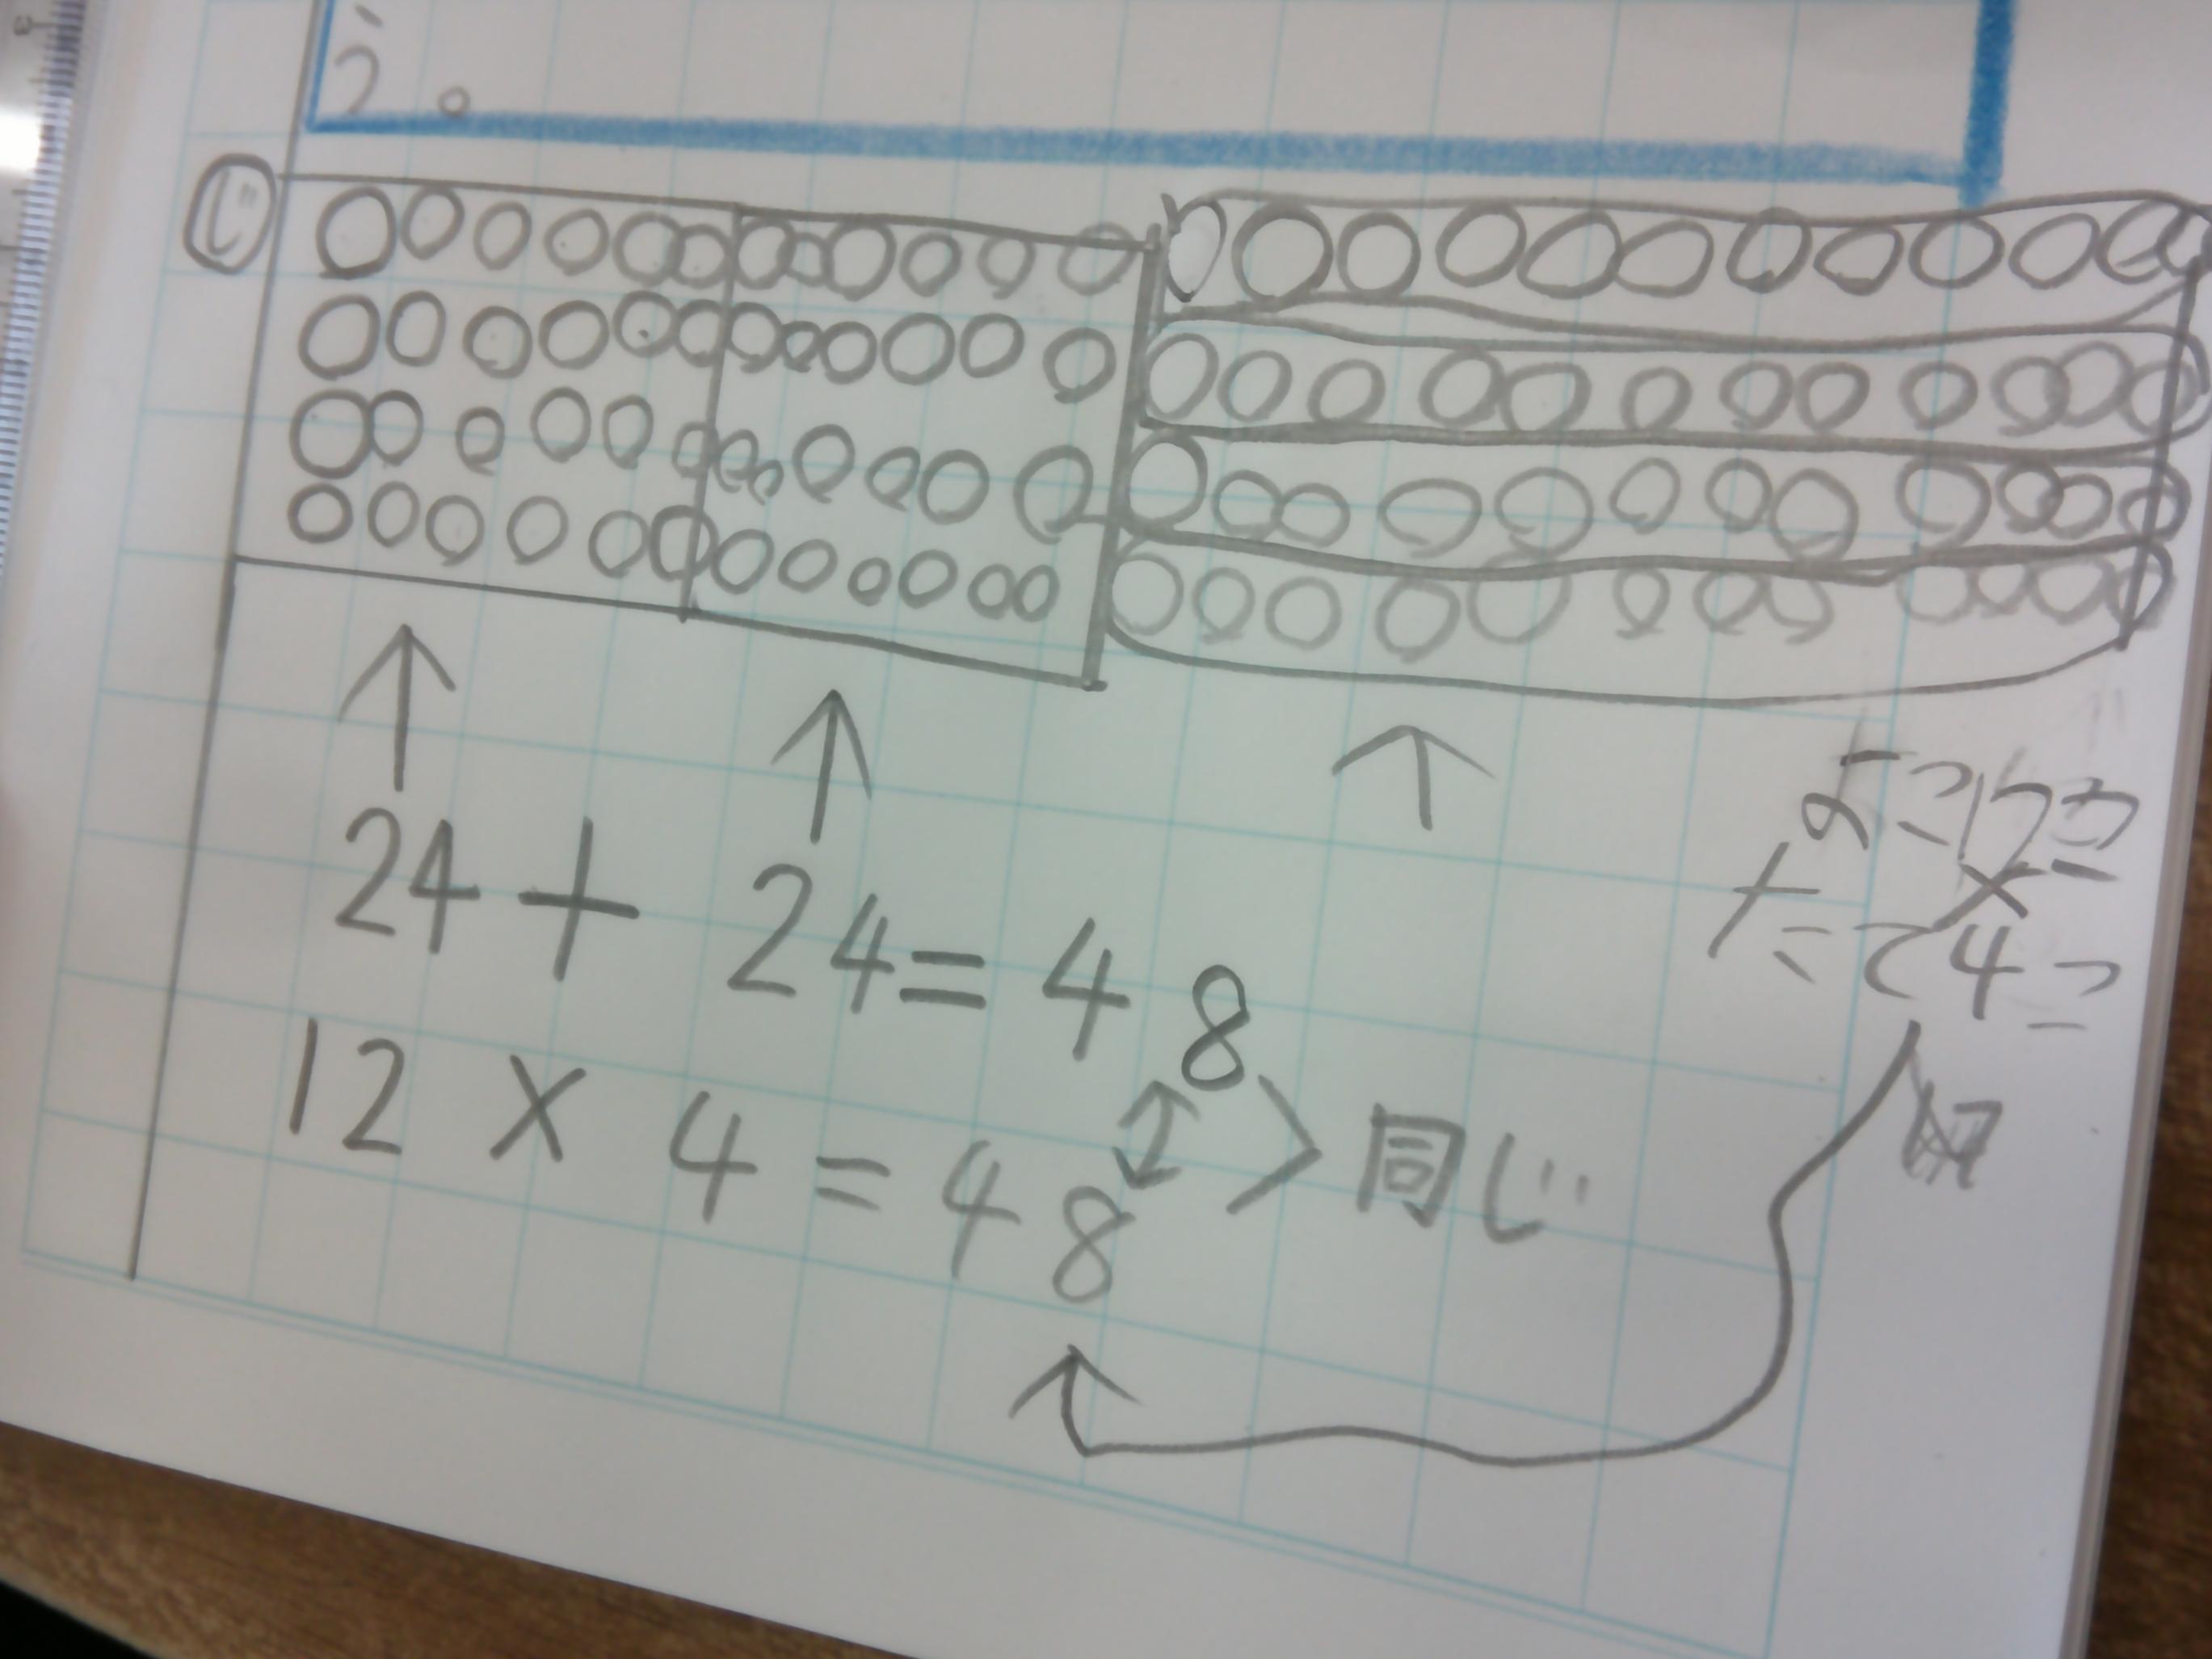 う。
じ
24+24=48
12×4=48
同じ
よこ12こ
×
たて4こ